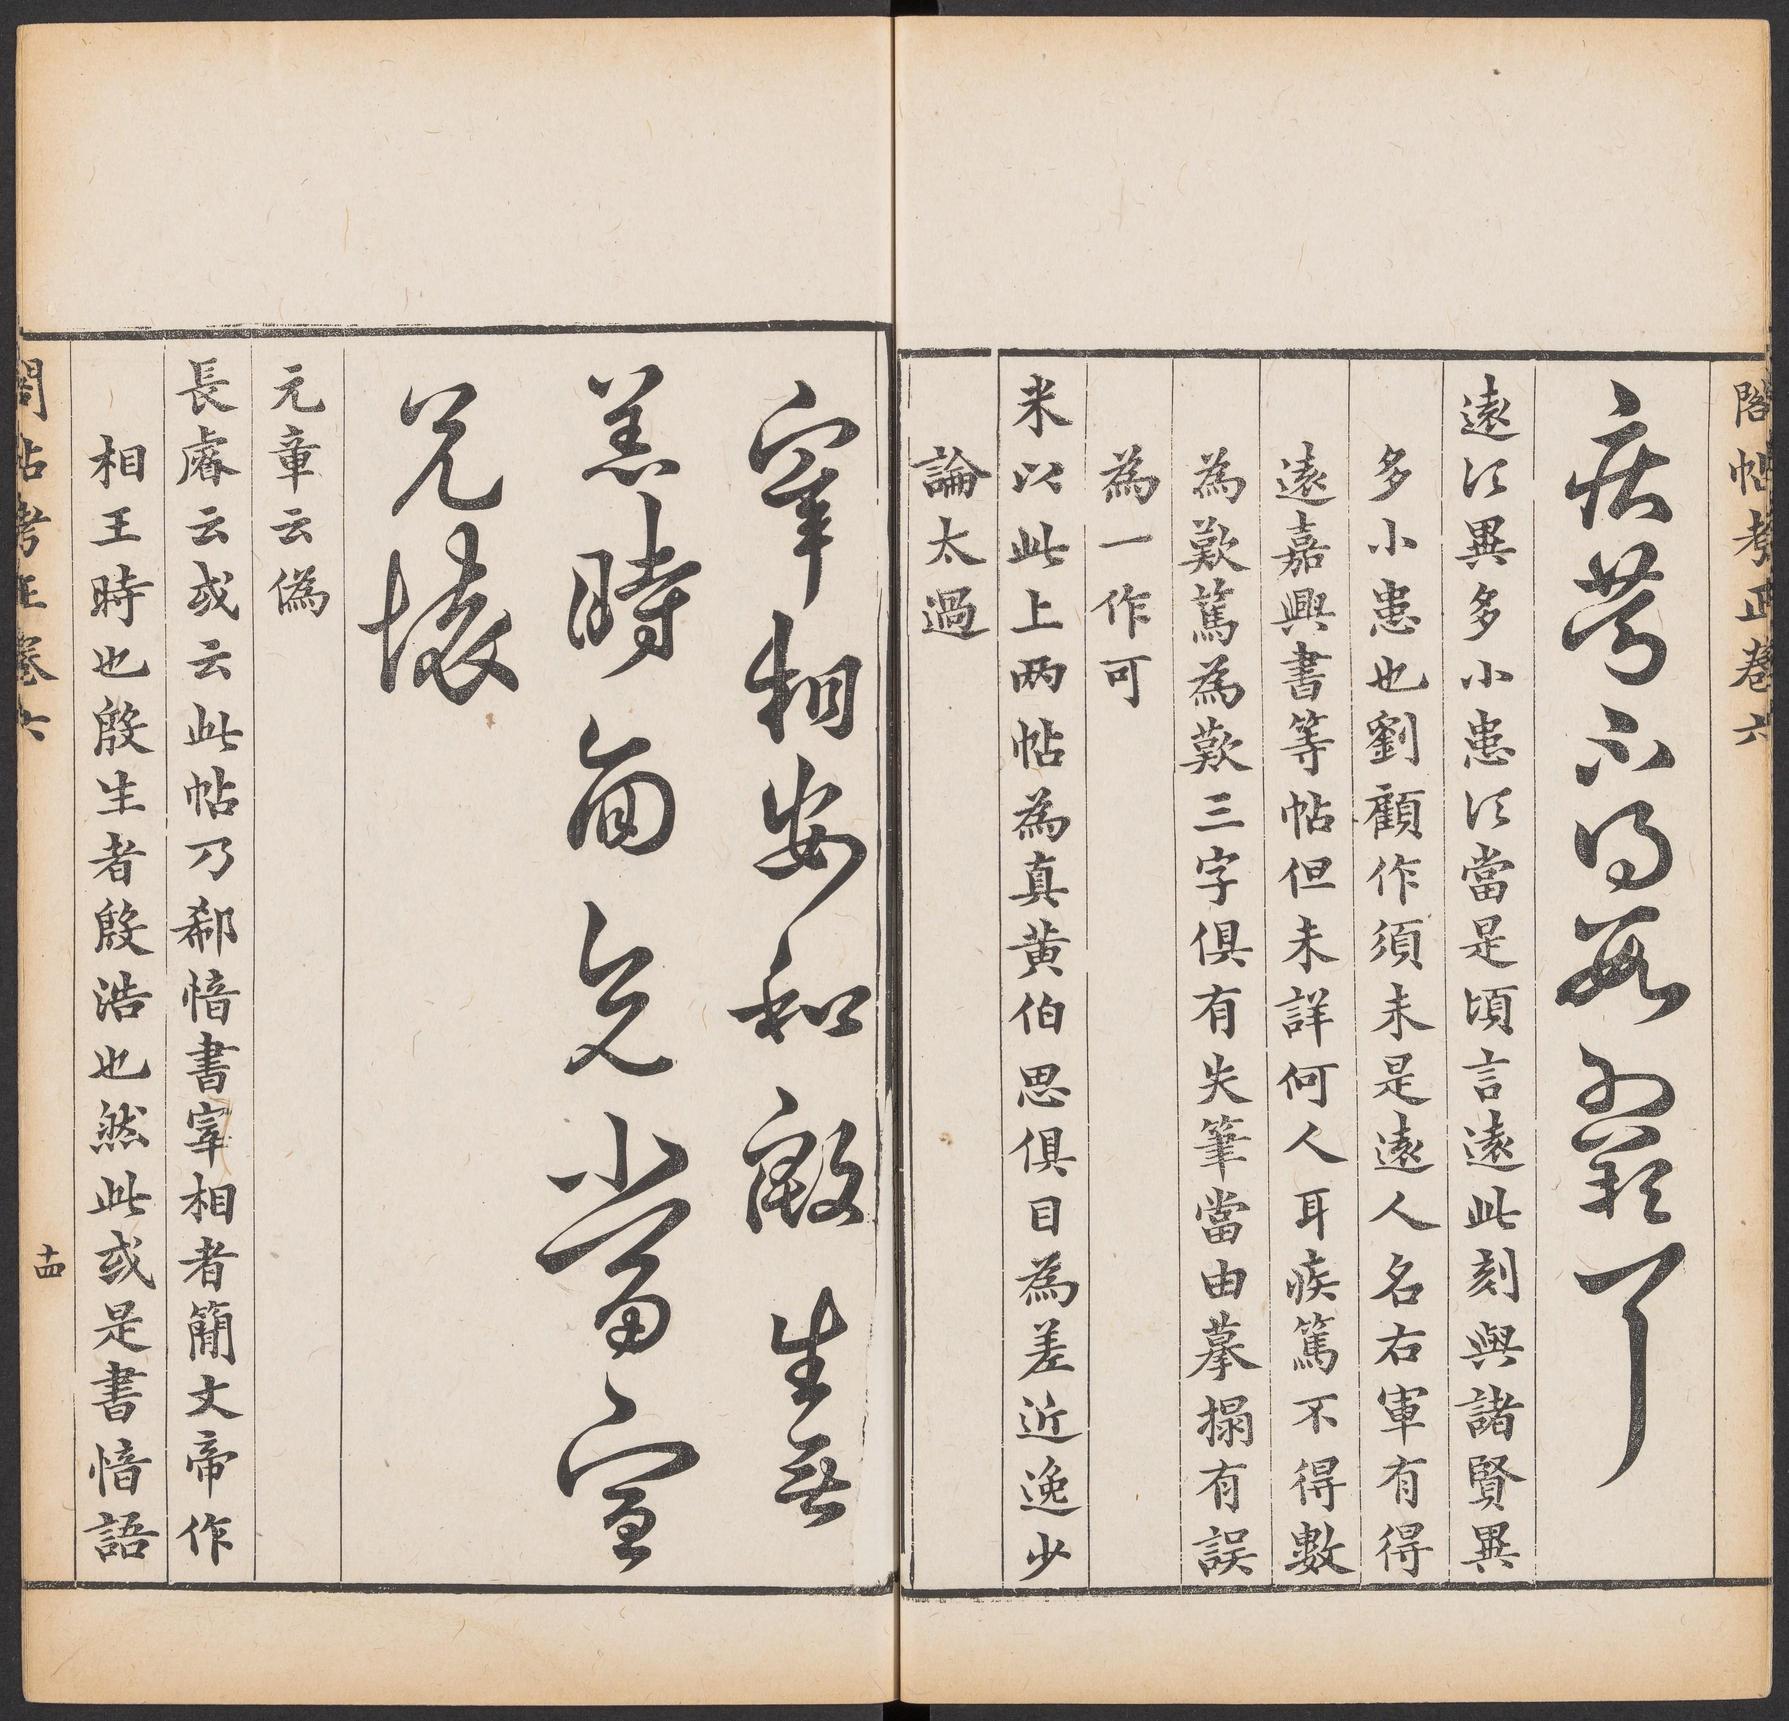 閣帖考正卷六
疾篤不得數可歎可
遠以異多小患以當是頃言遠此刻與諸賢異
多小患也劉顧作須未是遠人名右軍有得
遠嘉興書等帖但未詳何人耳疾篤不得數
為歎篤為歎三字俱有失筆當由摹搨有誤
為一作可
米以此上两帖為真黄伯思俱目為差近逸少
論太過
宰相安和殷生無
恙時面兄當宣
兄懷
元章云偽
長睿云或云此帖乃郗愔書宰相者簡文帝作
相王時也殷生者殷浩也然此或是書愔語
閣帖考正卷六
十四